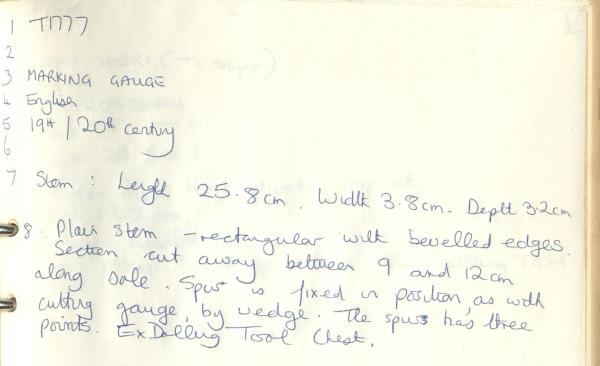 1 T1777
2
3 MARKING GAUGE
4 English
5 19th / 20th century
6
7 Stem : Length 25.8cm. Width 3.8cm. Depth 3.2cm
8. Plain stem - rectangular with bevelled edges
Section cut away between 9 and 12cm
along sole. Spur is fixed in position, as with
cutting gauge, by wedge. The spur has three
points. Ex Dalling Tool Chest.